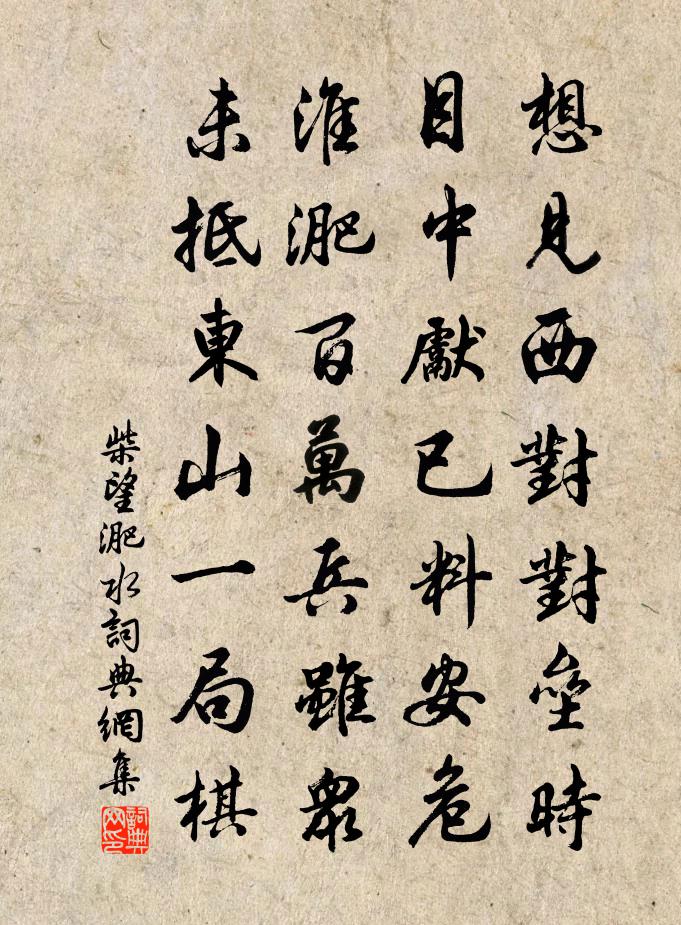 想見西對對壘時
目中獻已料安危
淮淝百萬兵雖衆
未抵東山一局棋
柴望淝水詞典網集
詞典網印